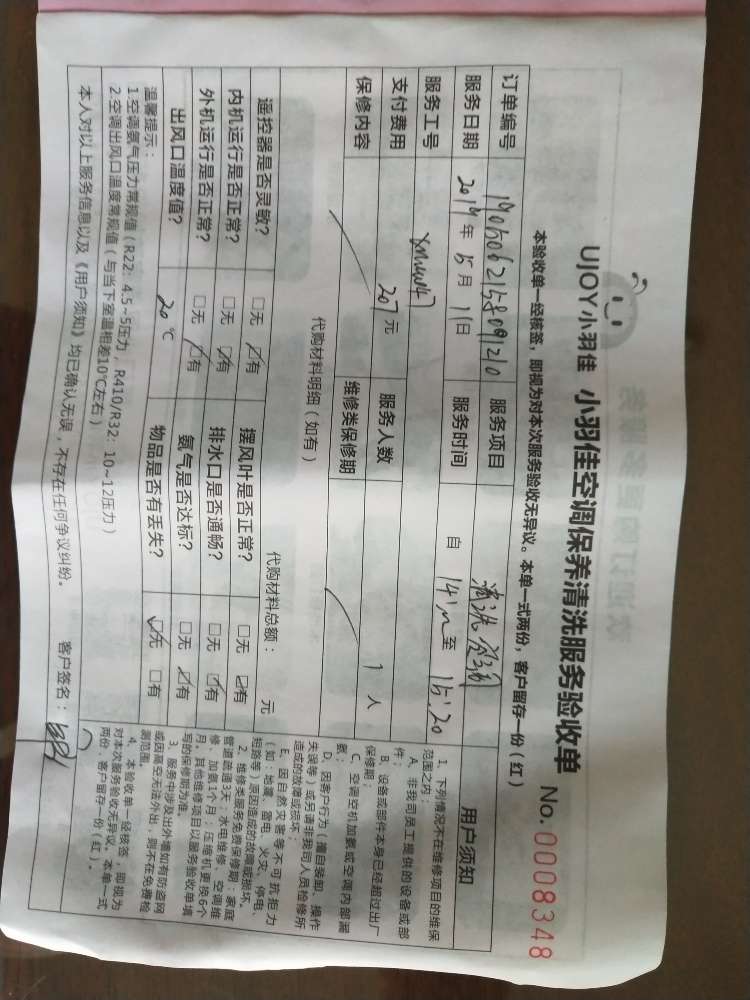 UJOY小羽佳 小羽佳空调保养清洗服务验收单 No. 0008348
本验收单一经核签，即视为对本次服务验收无异议。本单一式两份，客户留存一份（红）
订单编号 服务项目
服务日期 2019年5月11日 服务时间 自 至 15:20
服务工号
支付费用 207元 服务人数 1人
保修内容 维修类保修期
代购材料明细（如有） 代购材料总额： 元
遥控器是否灵敏？ □无 ☑有 摆风叶是否正常？ □无 ☑有
内机运行是否正常？ □无 ☑有 排水口是否通畅？ □无 ☑有
外机运行是否正常？ □无 ☑有 氨气是否达标？ □无 ☑有
出风口温度值？ 20℃ 物品是否有丢失？ ☑无 □有
温馨提示：
1.空调氨气压力常规值（R22：4.5~5压力，R410/R32：10~12压力）
2.空调出风口温度常规值（与当下室温相差10℃左右）
本人对以上服务信息以及《用户须知》均已确认无误，不存在任何争议纠纷。 客户签名：
用户须知
1. 下列情况不在维修项目的维保
范围之内：
A. 非我司员工提供的设备或部
件；
B. 设备或部件本身已经超过出厂
保修期；
C. 空调空机加氨或空调内部漏
氨；
D. 因客户行为（擅自装卸、操作
失误等）或另请非我司人员检修所
造成的故障或损坏。
E. 因自然灾害等不可抗拒力
（如：地震、雷电、火灾、停电、
短路等）原因造成的故障或损坏。
2. 维修类服务免费保修期：家庭
管道疏通3天；水电维修、空调维
修、加氨1个月；压缩机更换6个
月。其他维修项目以服务验收单填
写的保修期为准。
3. 服务中涉及出外墙如有防盗网
或因高空无法外出，则不在免费检
测范围。
4. 本验收单一经核签，即视为
对本次服务验收无异议。本单一式
两份，客户留存一份（红）。